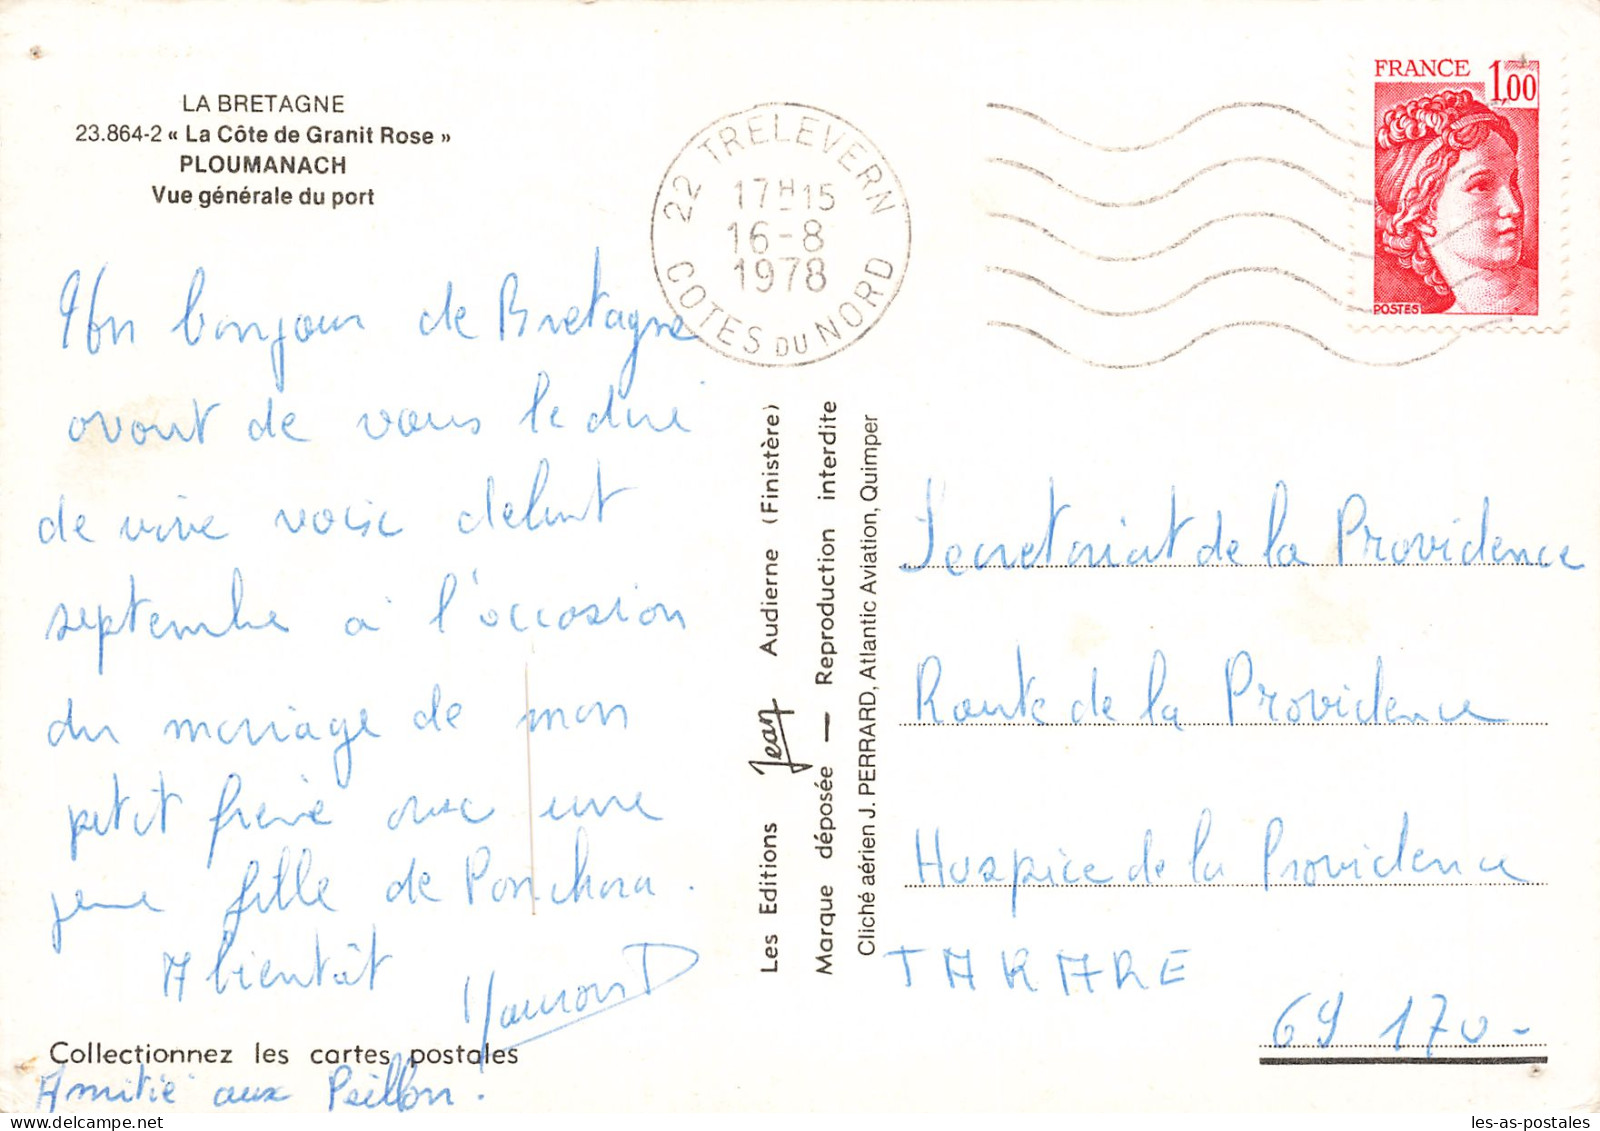 LA BRETAGNE
23.864-2 « La Côte de Granit Rose »
PLOUMANACH
Vue générale du port
22 TRELEVERN
17H15
16-8
1978
COTES DU NORD
FRANCE 1,00
POSTES
Un bonjour de Bretagne
avant de vous le dire
de vive voix début
septembre à l'occasion
du mariage de mon
petit frère avec une
jeune fille de Ponchara.
A bientôt
Collectionnez les cartes postales
Amitié aux Peillon.
Les Editions Jean Audierne (Finistère)
Marque déposée — Reproduction interdite
Cliché aérien J. PERRARD, Atlantic Aviation, Quimper
Secretariat de la Providence
Route de la Providence
Hospice de la Providence
TARARE
69 170-
les-as-postales